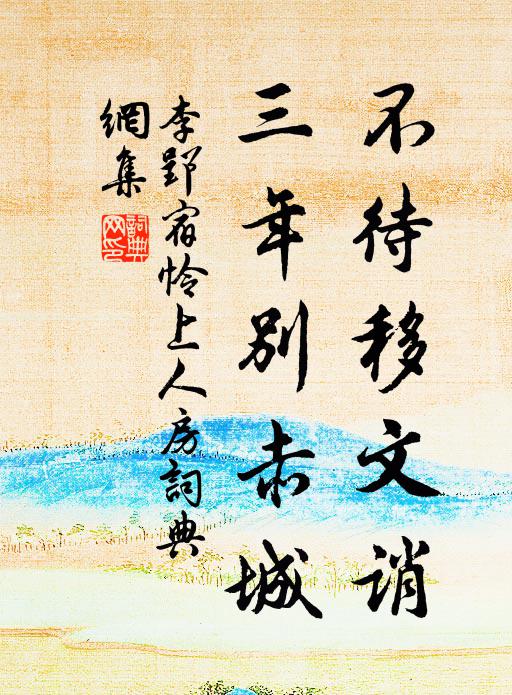 不待移文誚
三年別赤城
李郢宿怜上人房詞典
網集
詞典網印